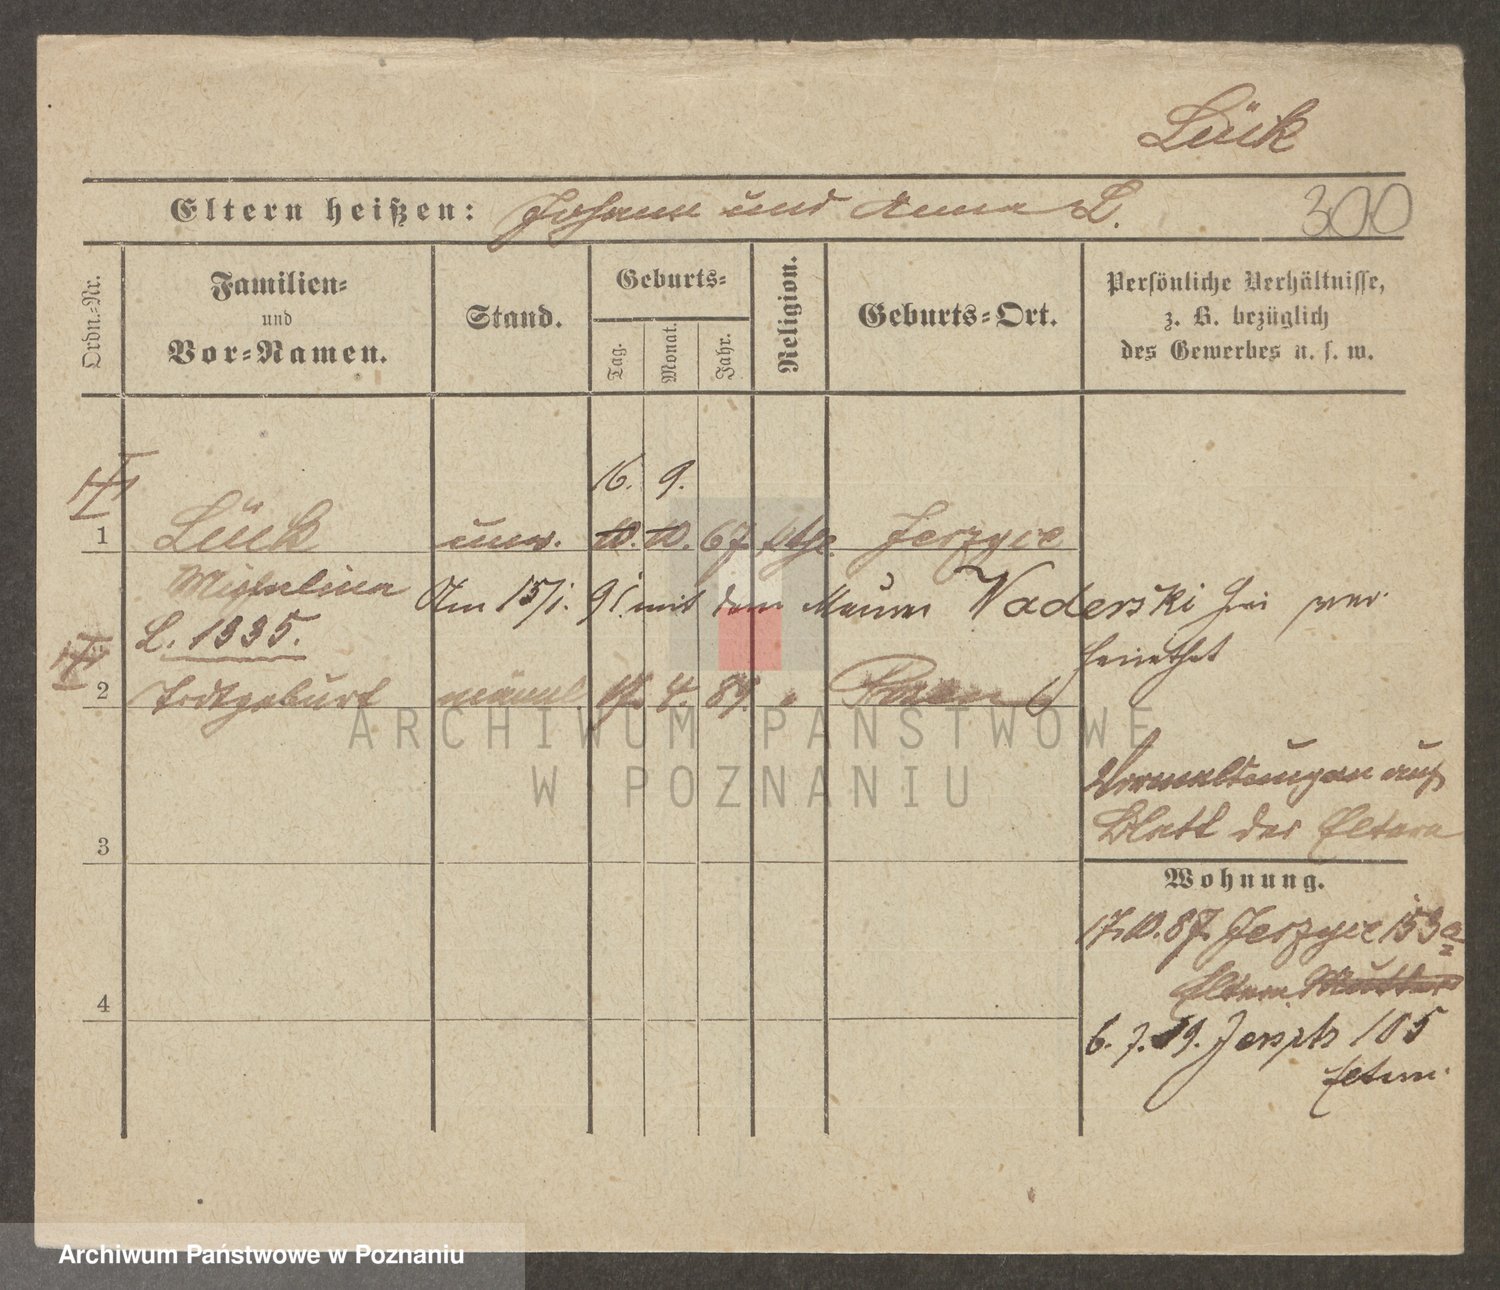 Lück
Eltern heißen: Johann und Anna L. 300
Ordn.-Nr.
Familien-
und
Vor-Namen.
Stand.
Geburts-
Tag.
Monat.
Jahr.
Religion.
Geburts-Ort.
Persönliche Verhältnisse,
z. B. bezüglich
des Gewerbes u. s. w.
16. 9.
1 Lück unv. 10. 10. 67. kth. Jerzyce
Michalina Am 15/1. 91. mit dem Maurer Vaderski hier ver
L. 1335. heirathet
2 Todtgeburt männl. 17. 4. 89. " Posen
Verwaltungen auf
Blatt der Eltern
3
Wohnung.
17.10.87. Jerzyce 153a
Eltern Mutter
4
6. 7. 89. Jersyts 105
Eltern
ARCHIWUM PAŃSTWOWE
W POZNANIU
Archiwum Państwowe w Poznaniu